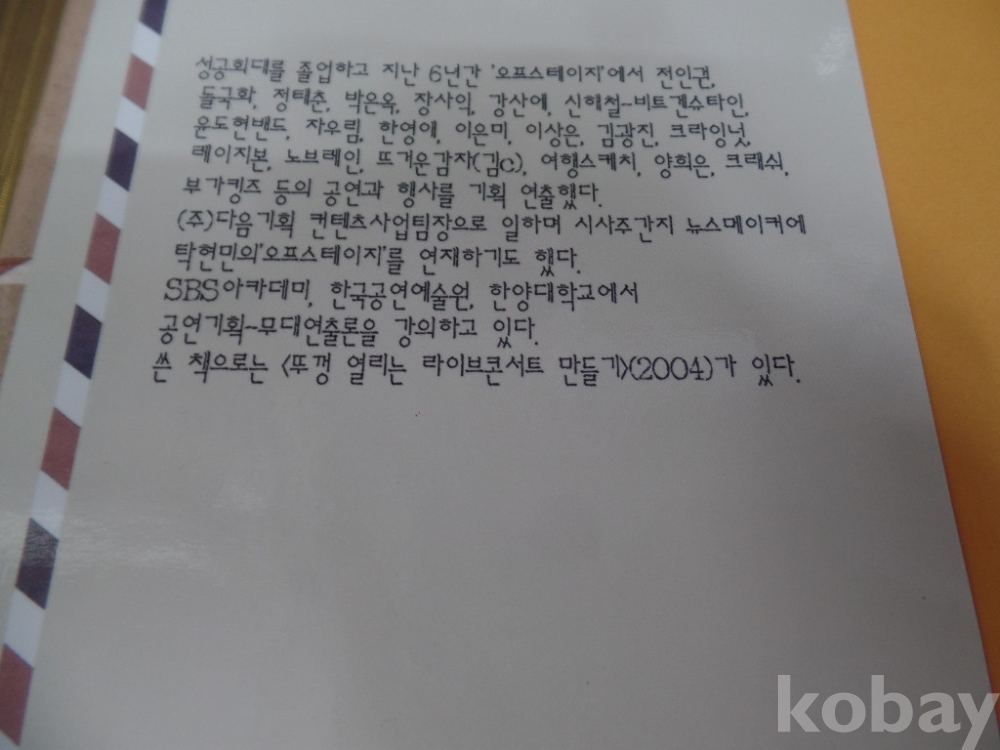 성공회대를 졸업하고 지난 6년간 '오프스테이지'에서 전인권,
들국화, 정태춘, 박은옥, 장사익, 강산에, 신해철~비트겐슈타인,
윤도현밴드, 자우림, 한영애, 이은미, 이상은, 김광진, 크라잉넛,
레이지본, 노브레인, 뜨거운감자(김C), 여행스케치, 양희은, 크래쉬,
부가킹즈 등의 공연과 행사를 기획 연출했다.
(주)다음기획 컨텐츠사업팀장으로 일하며 시사주간지 뉴스메이커에
탁현민의'오프스테이지'를 연재하기도 했다.
SBS아카데미, 한국공연예술원, 한양대학교에서
공연기획~무대연출론을 강의하고 있다.
쓴 책으로는 〈뚜껑 열리는 라이브콘서트 만들기〉(2004)가 있다.
kobay